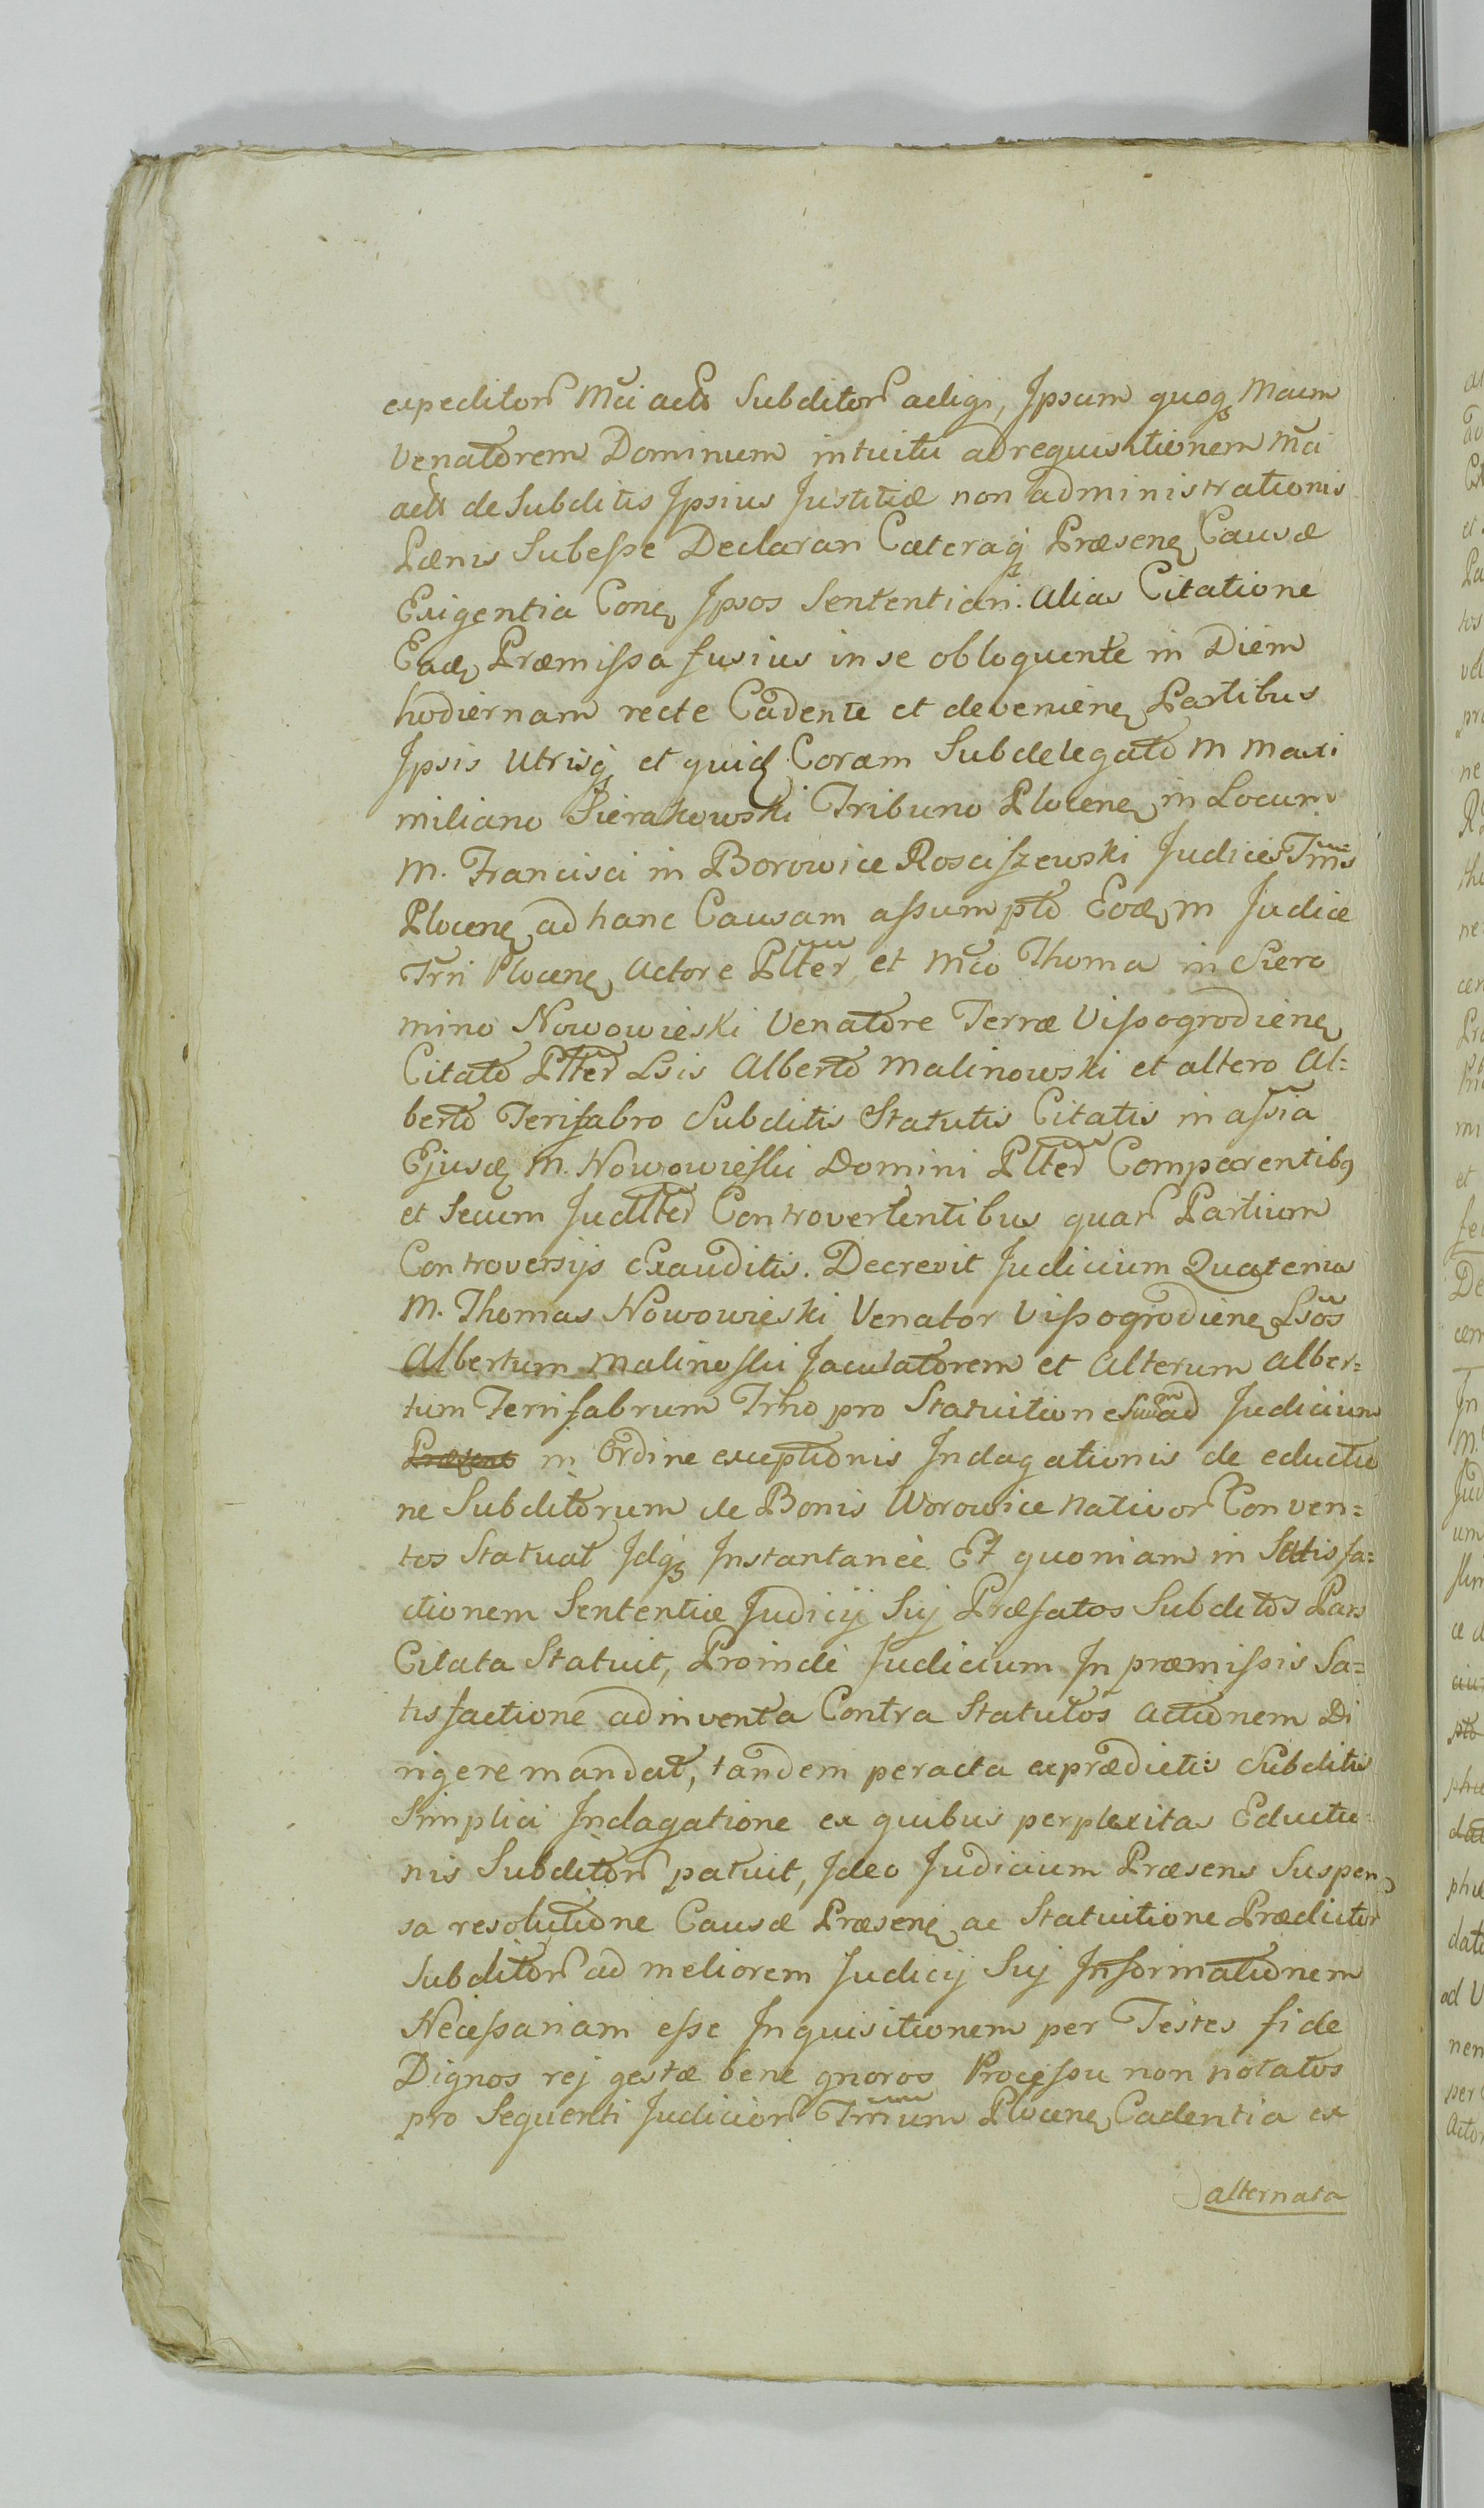 expeditor Mci acto Subditor adigi, Ipsum quoq Mcum
Venatorem Dominum intuitu ad requisitionem Mci
acto de Subditis Ipsius Justitiæ non administrationis
Pænis Subesse Declarari Cæteraq Præsene Causæ
Exigentia Cone Ipsos Sententiari. Alias Citatione
Ead Præmissa fusius in se obloquente in Diem
hodiernam recte Cadente et deveniene Partibus
Ipsis Utrisq et quid Coram Subdelegato M Maxi
miliano Sierakowski Tribuno Plocene in Locum
M. Francisci in Borowice Rosciszewski Judicis Trris
Plocene ad hanc Causam assumpto Eod M Judice
Trri Plocene Actore Plter et Mco Thoma in Siero
mino Nowowieski Venatore Terræ Vissogrodiene
Citato Plter Lsis Alberto Malinowski et altero Al=
berto Ferifabro Subditis Statutis Citatis in assia
Ejusd M. Nowowieski Domini Plter Comparentibq
et Secum Judlter Controvertentibus quar Partium
Controversijs exauditis. Decrevit Judicium Quatenus
M. Thomas Nowowieski Venator Vissogrodiene Lsos
Albertum Malinoski Jaculatorem et Alterum Alber=
tum Ferrifabrum Trmo pro Statuitione Suum ad Judicium
Præsens in Ordine exceptionis Indagationis de eductio
ne Subditorum de Bonis Worowice Nativor Conven=
tos Statuat Idq Instantanee Et quoniam in Satisfa=
ctionem Sententiæ Judicij Sij Præfatos Subditos Pars
Citata Statuit, Proinde Judicium In præmissis Sa=
tisfactione adinventa Contra Statutos Actionem Di
rigere mandat, tandem peracta ex prædictis Subditis
Simplici Indagatione ex quibus perplexitas Eductio=
nis Subditor patuit, Ideo Judicium Præsens Suspen
sa resolutione Causæ Præsene ac Statuitione Prædictor
Subditor ad meliorem Judicij Sij Informationem
Necessariam esse Inquisitionem per Testes fide
Dignos rej gestæ bene gnoros Processu non notatos
pro Sequenti Judicior Trrium Plocene Cadentia ex
alternata